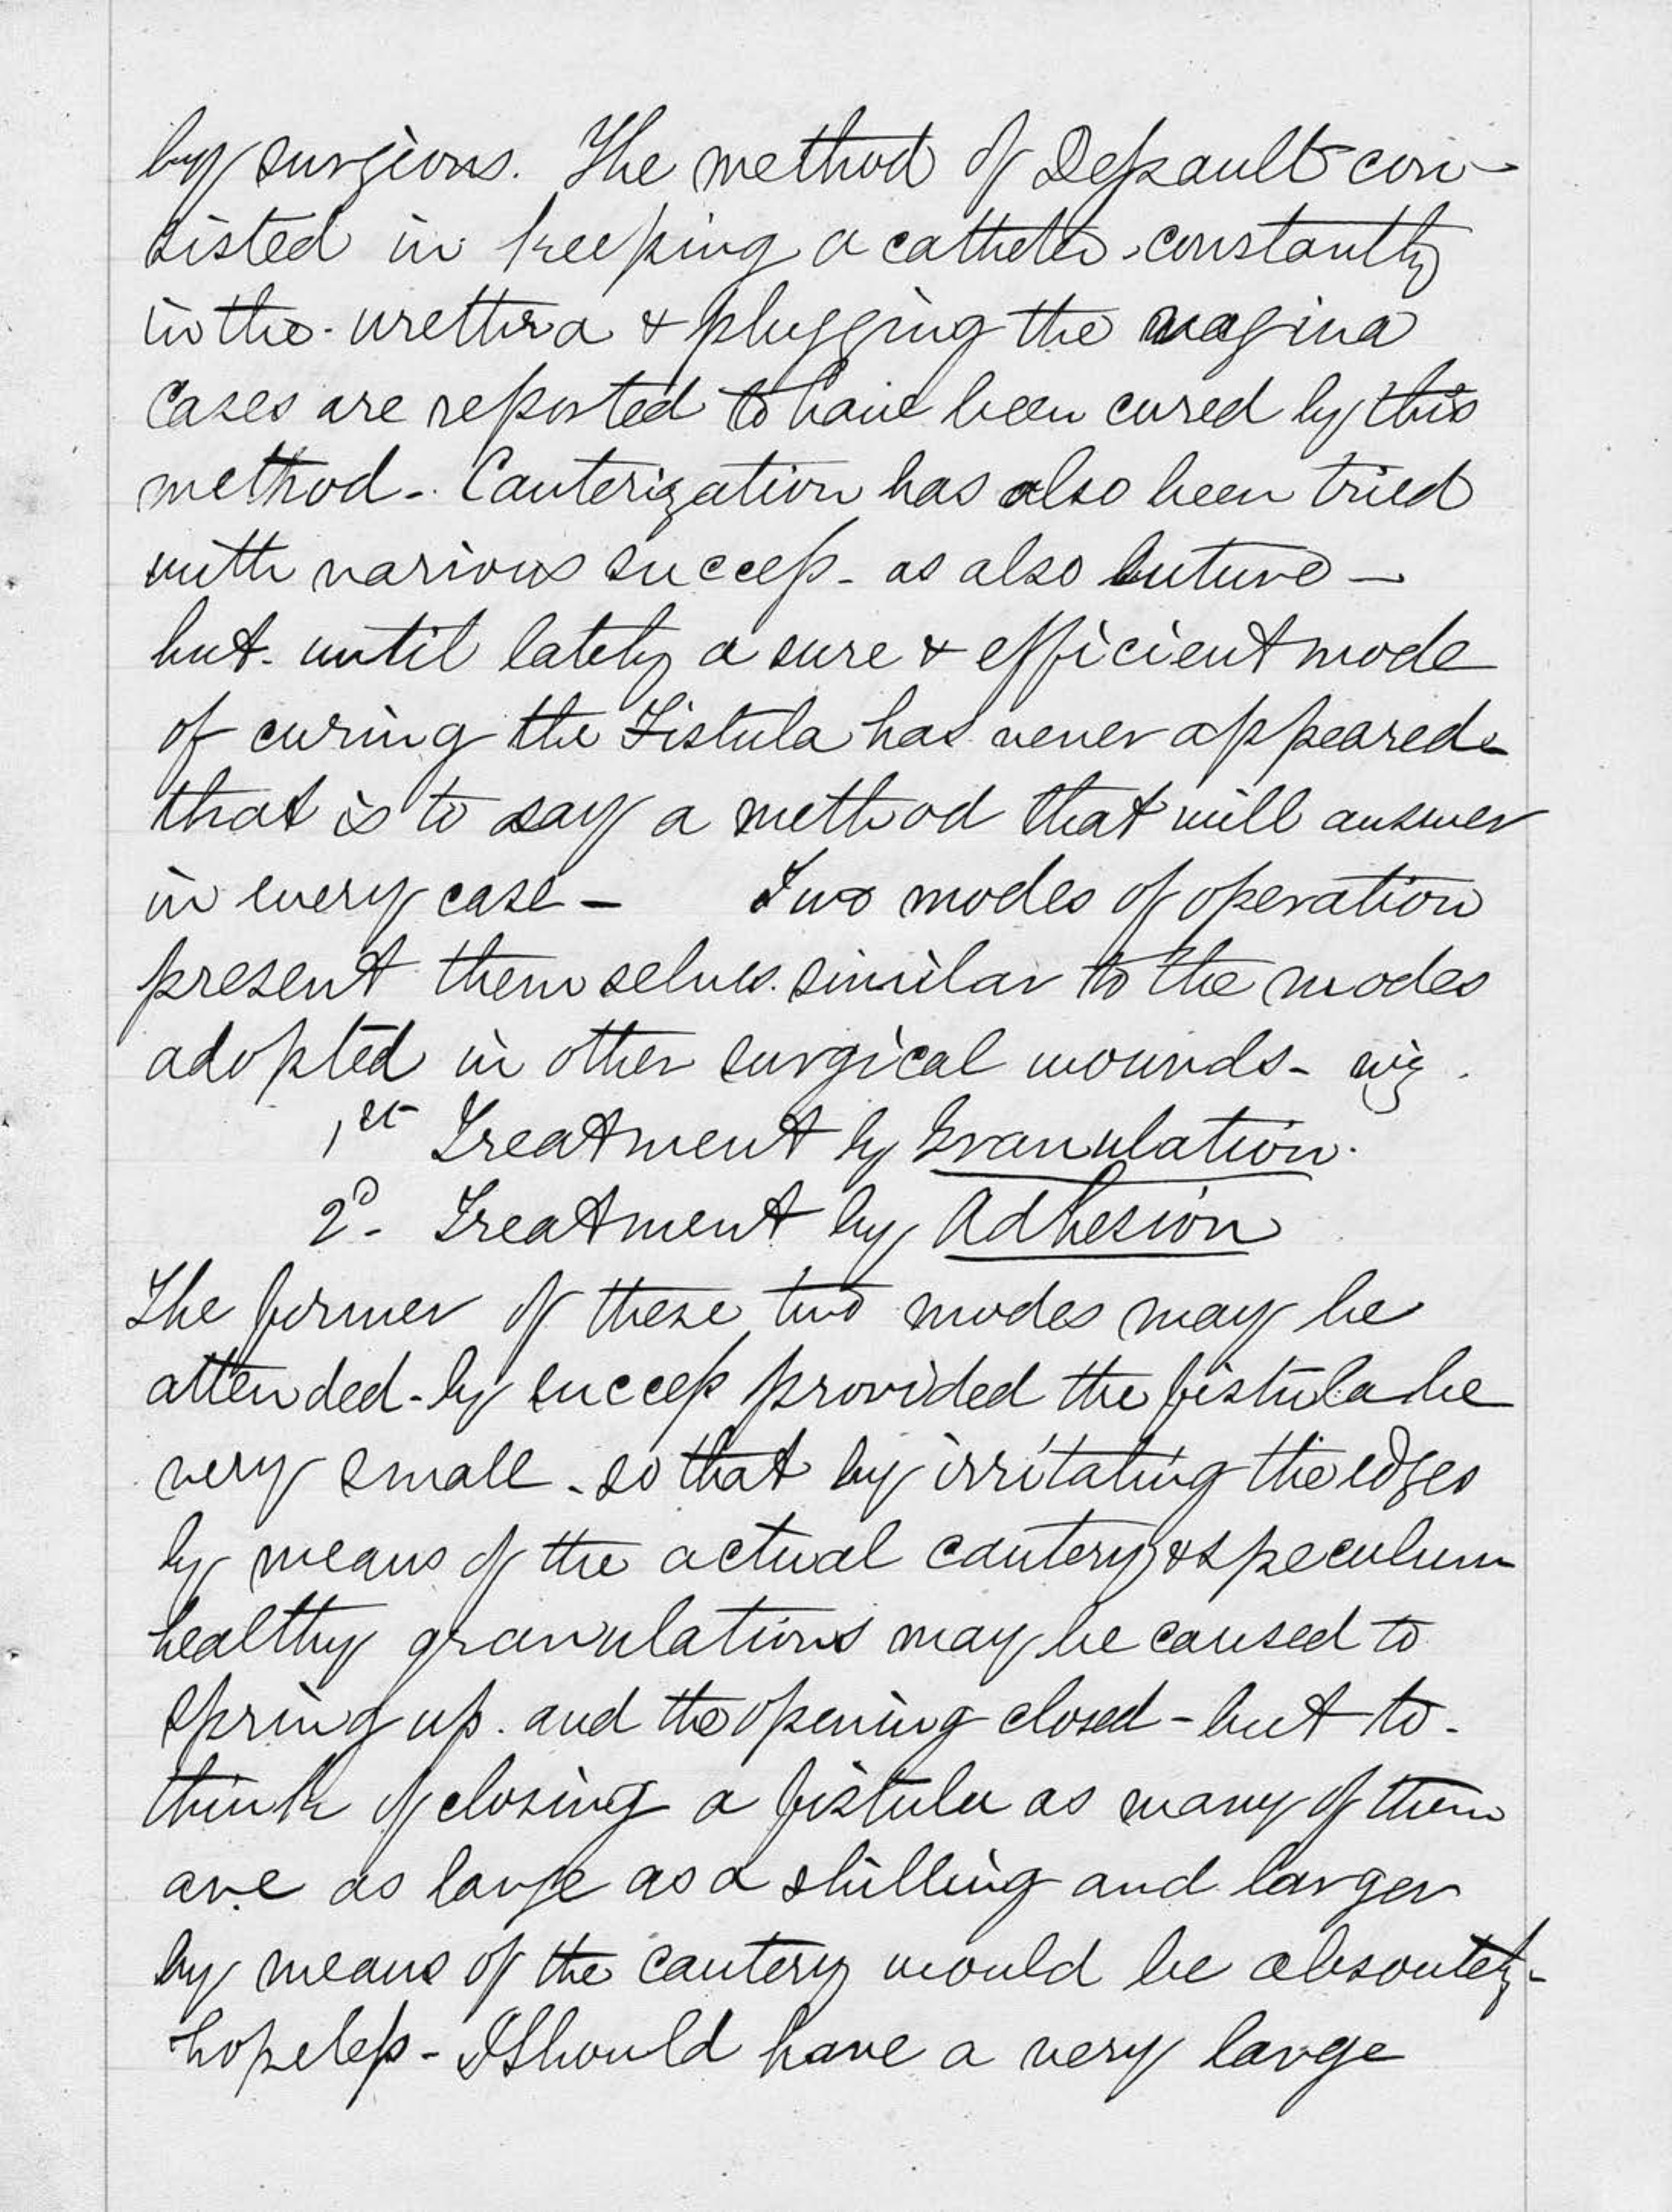 by surgions. The method of Depault con-
sisted in keeping a catheter constantly
in the urethra & plugging the vagina
Cases are reported to have been cured by this
method - Cauterization has also been tried
with various success - as also suture -
but until lately a sure & efficient mode
of curing the Fistula has never appeared -
that is to say a method that will answer
in every case - Two modes of operation
present themselves similar to the modes
adopted in other surgical wounds - viz.
1st Treatment by Granulation.
2d - Treatment by Adhesion
The former of these two modes may be
attended - by success provided the fistula be
very small - so that by irritating the edges
by means of the actual cautery & speculum
healthy granulations may be caused to
spring up. and the opening closed - but to -
think of closing a fistula as many of them
are as large as a shilling and larger
by means of the cautery would be absoutely -
hopeless - I Should have a very large